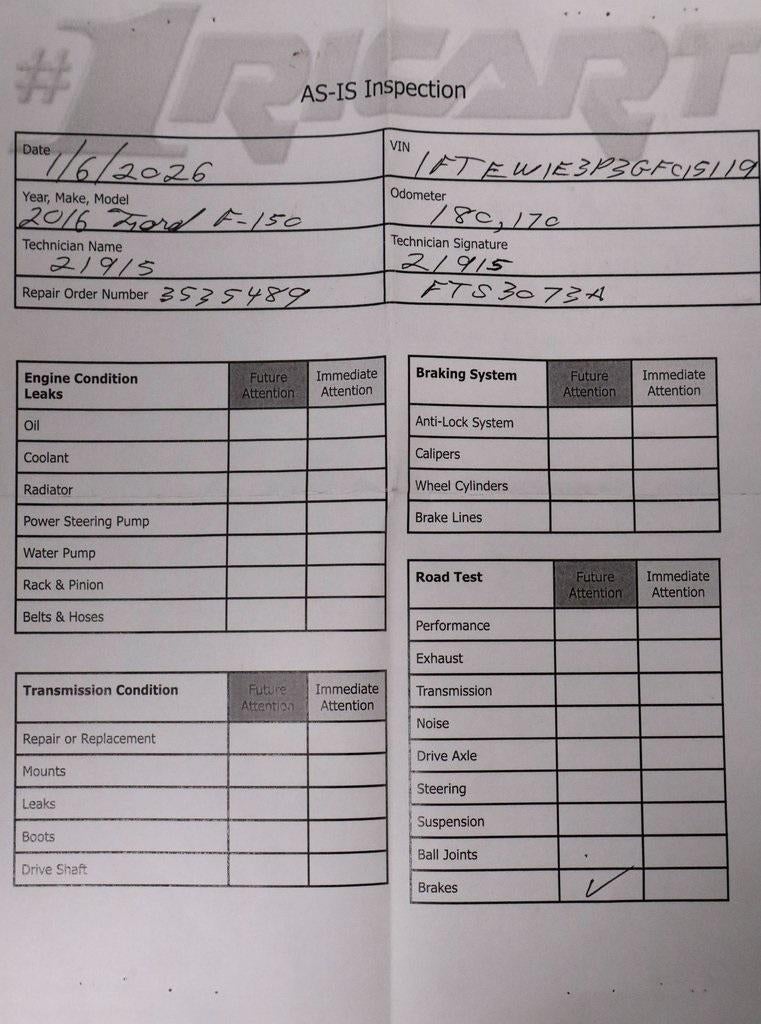 #1 RICART
AS-IS Inspection
Date 1/6/2026
VIN 1FTEW1E3P3GFC15119
Year, Make, Model
2016 Ford F-150
Odometer
180,170
Technician Name
21915
Technician Signature
21915
Repair Order Number 3535489
FTS3073A
Engine Condition Leaks Future Attention Immediate Attention
Oil
Coolant
Radiator
Power Steering Pump
Water Pump
Rack & Pinion
Belts & Hoses
Transmission Condition Future Attention Immediate Attention
Repair or Replacement
Mounts
Leaks
Boots
Drive Shaft
Braking System Future Attention Immediate Attention
Anti-Lock System
Calipers
Wheel Cylinders
Brake Lines
Road Test Future Attention Immediate Attention
Performance
Exhaust
Transmission
Noise
Drive Axle
Steering
Suspension
Ball Joints
Brakes ✓